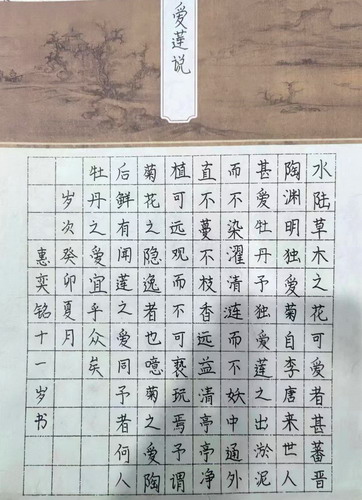 爱莲说
水陆草木之花可爱者甚蕃晋
陶渊明独爱菊自李唐来世人
甚爱牡丹予独爱莲之出淤泥
而不染濯清涟而不妖中通外
直不蔓不枝香远益清亭亭净
植可远观而不可亵玩焉予谓
菊花之隐逸者也噫菊之爱陶
后鲜有闻莲之爱同予者何人
牡丹之爱宜乎众矣
岁次癸卯夏月
惠奕铭十一岁书